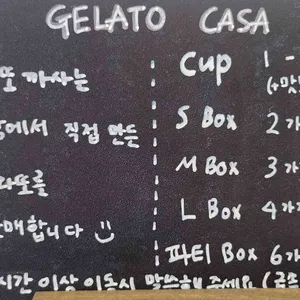 GELATO CASA
또 까사는
에서 직접 만든
라또를
매합니다
Cup 1 -
(+맛
S Box 2가
M Box 3가
L Box 4가
파티 Box 6가
시간 이상 이동시 말씀해 주세요